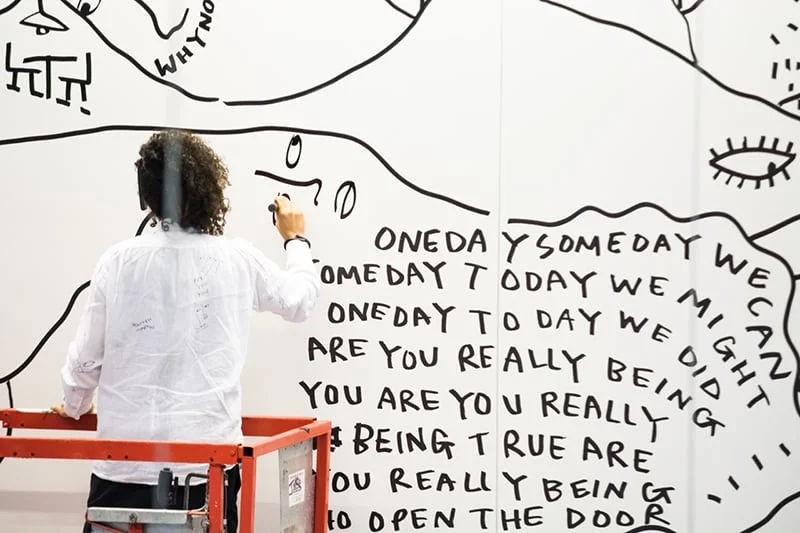 WHYNO
ONEDAYSOMEDAY WE CAN
OMEDAY TODAY WE MIGHT
ONEDAY TODAY WE DID
ARE YOU REALLY BEING
YOU ARE YOU REALLY
BEING TRUE ARE
OU REALLY BEING
O OPEN THE DOOR